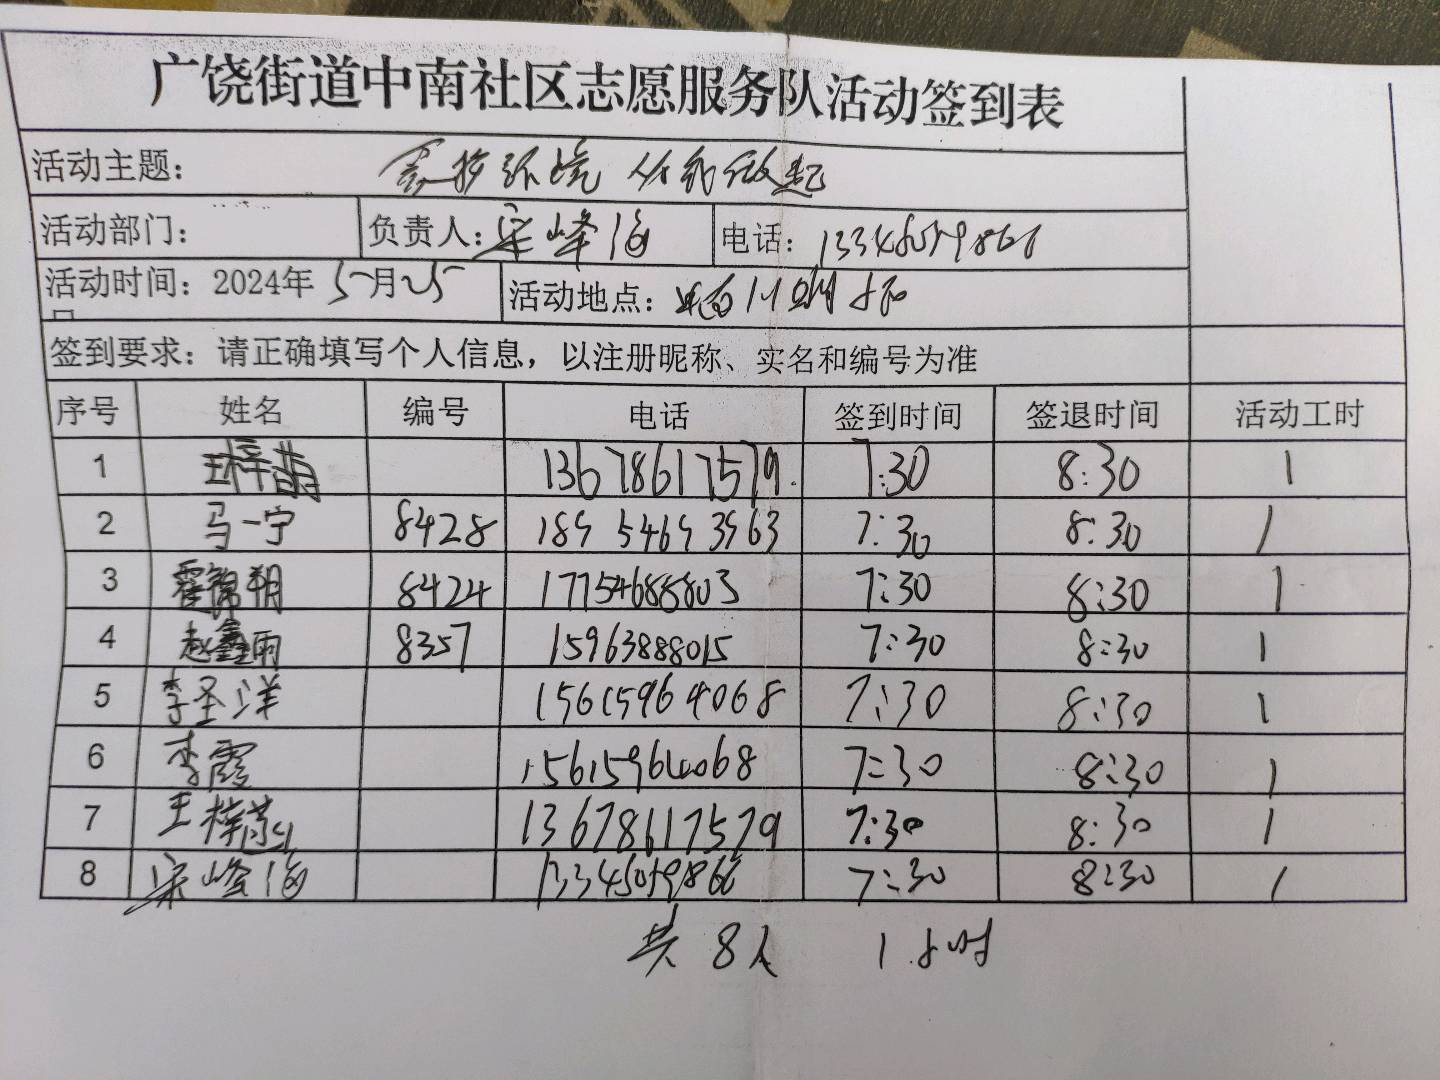 广饶街道中南社区志愿服务队活动签到表
活动主题： 环境 从我做起
活动部门： 负责人：宋峰海 电话：
活动时间：2024年5月25 活动地点：
签到要求：请正确填写个人信息，以注册昵称、实名和编号为准
序号 姓名 编号 电话 签到时间 签退时间 活动工时
1 王梓萌 13678617579 7:30 8:30 1
2 马一宁 8428 7:30 8:30 1
3 霍锦朝 8424 17754688803 7:30 8:30 1
4 赵鑫雨 8357 15963888015 7:30 8:30 1
5 李圣洋 15615964068 7:30 8:30 1
6 李霞 15615964068 7:30 8:30 1
7 王梓 13678617579 7:30 8:30 1
8 宋峰海 7:30 8:30 1
共8人 1小时